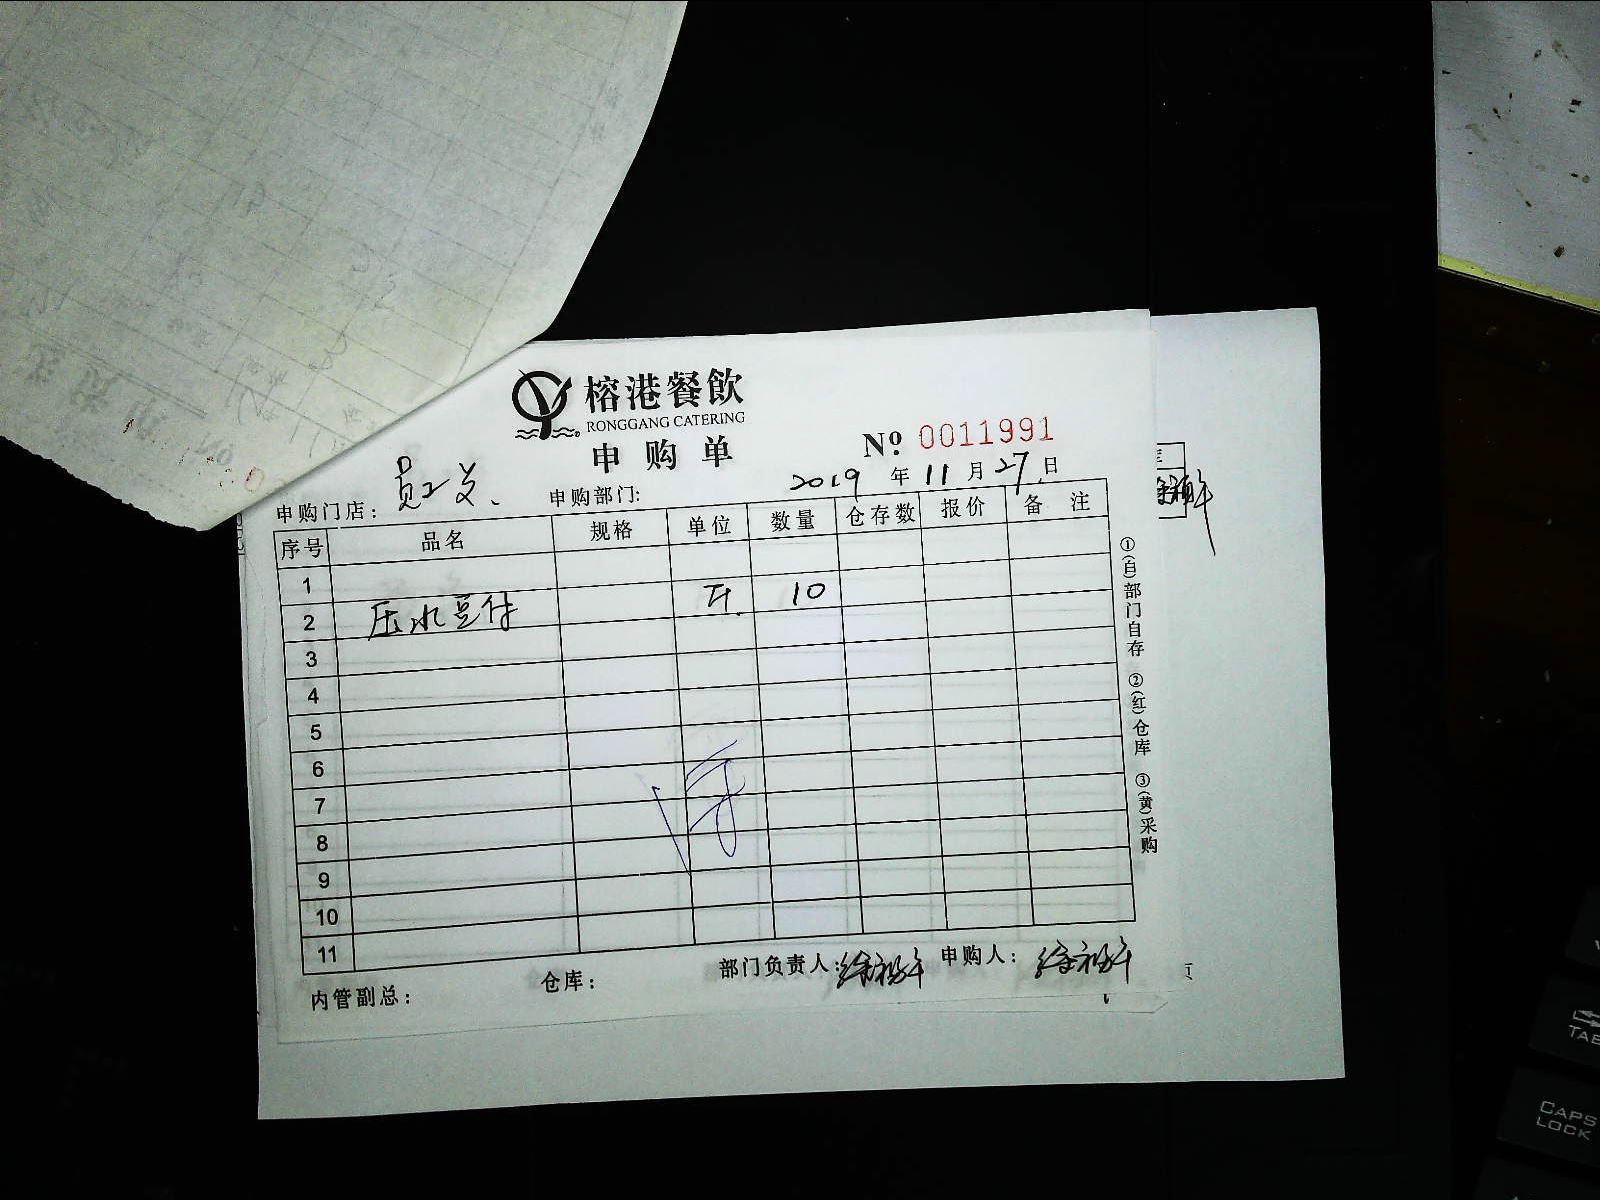 榕港餐飲
RONGGANG CATERING
申购单
Nº 0011991
申购门店: 员工 申购部门: 2019 年 11 月 27 日
序号 品名 规格 单位 数量 仓存数 报价 备 注
1
2 压水豆付 斤 10
3
4
5
6
7
8
9
10
11
内管副总: 仓库: 部门负责人: 申购人:
①(白)部门自存 ②(红)仓库 ③(黄)采购
TAB
CAPS
LOCK